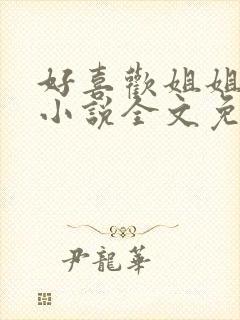 好喜歡姐姐
小說全文免
尹龍華